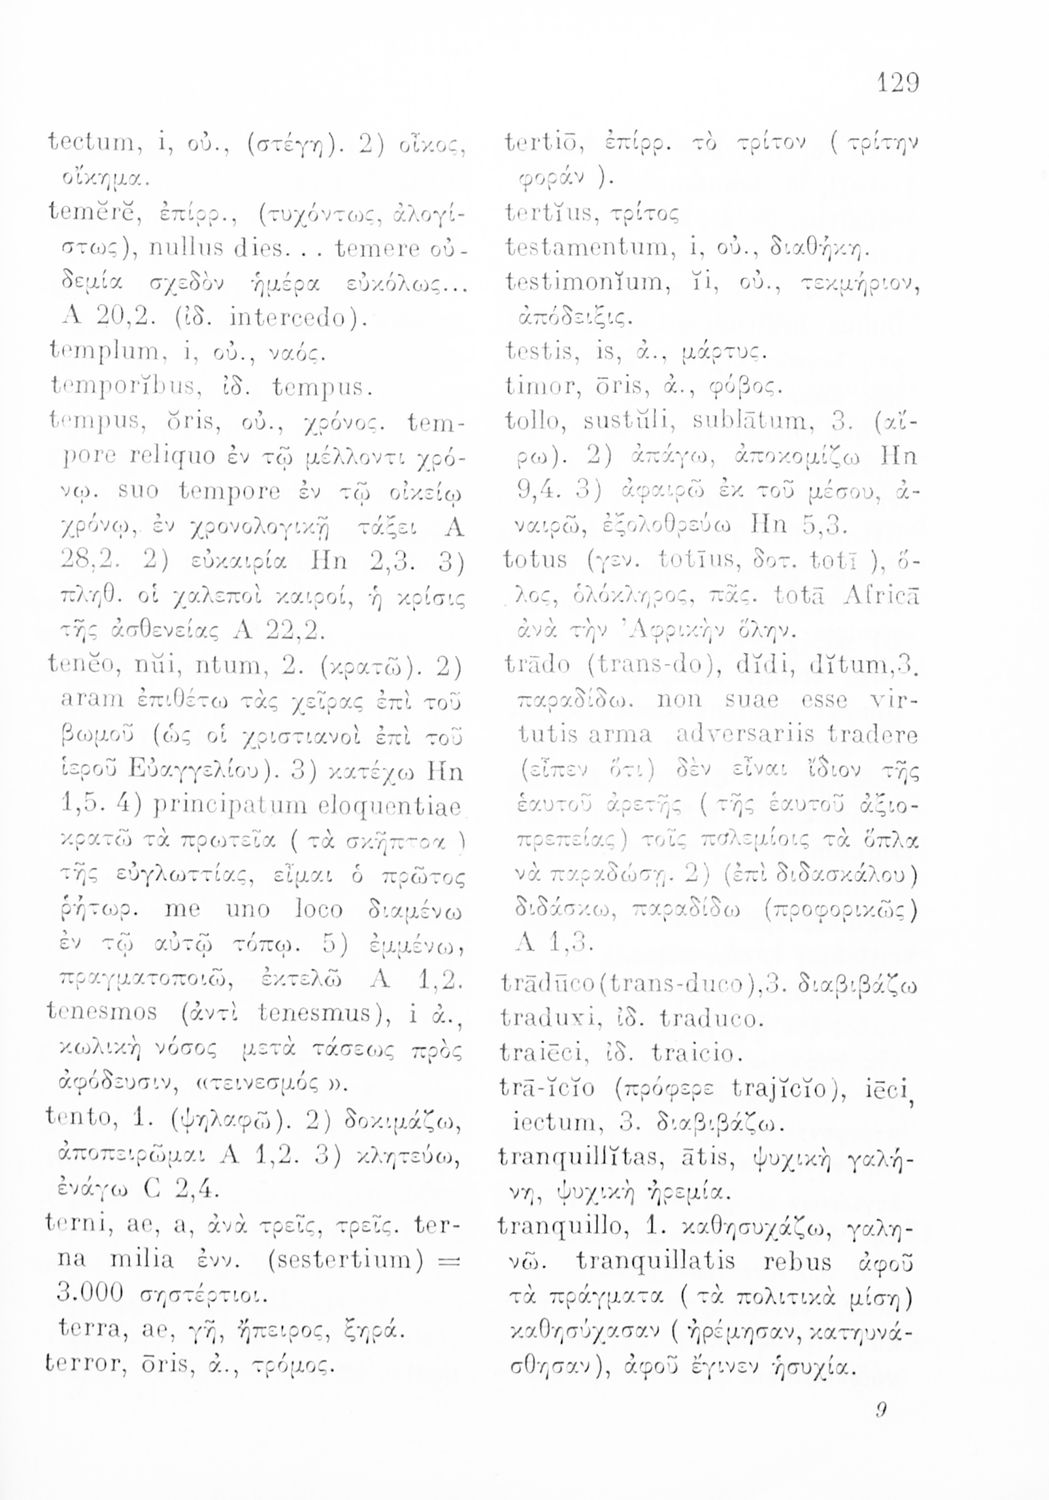 129
tectum, i, οὐ., (στέγη). 2) οἶκος,
οἴκημα.
temĕrĕ, ἐπίρρ., (τυχόντως, ἀλογί-
στως), nullus dies... temere οὐ-
δεμία σχεδὸν ἡμέρα εὐκόλως...
Α 20,2. (ἰδ. intercedo).
templum, i, οὐ., ναός.
temporĭbus, ἰδ. tempus.
tempus, ŏris, οὐ., χρόνος. tem-
pore reliquo ἐν τῷ μέλλοντι χρό-
νῳ. suo tempore ἐν τῷ οἰκείῳ
χρόνῳ, ἐν χρονολογικῇ τάξει Α
28,2. 2) εὐκαιρία Hn 2,3. 3)
πληθ. οἱ χαλεποὶ καιροί, ἡ κρίσις
τῆς ἀσθενείας Α 22,2.
tenĕo, nŭi, ntum, 2. (κρατῶ). 2)
aram ἐπιθέτω τὰς χεῖρας ἐπὶ τοῦ
βωμοῦ (ὡς οἱ χριστιανοὶ ἐπὶ τοῦ
ἱεροῦ Εὐαγγελίου). 3) κατέχω Hn
1,5. 4) principatum eloquentiae
κρατῶ τὰ πρωτεῖα ( τὰ σκῆπτρα )
τῆς εὐγλωττίας, εἶμαι ὁ πρῶτος
ῥήτωρ. me uno loco διαμένω
ἐν τῷ αὐτῷ τόπῳ. 5) ἐμμένω,
πραγματοποιῶ, ἐκτελῶ Α 1,2.
tenesmos (ἀντὶ tenesmus), i ἀ.,
κωλικὴ νόσος μετὰ τάσεως πρὸς
ἀφόδευσιν, «τεινεσμός ».
tento, 1. (ψηλαφῶ). 2) δοκιμάζω,
ἀποπειρῶμαι Α 1,2. 3) κλητεύω,
ἐνάγω C 2,4.
terni, ae, a, ἀνὰ τρεῖς, τρεῖς. ter-
na milia ἐνν. (sestertium) =
3.000 σηστέρτιοι.
terra, ae, γῆ, ἤπειρος, ξηρά.
terror, ōris, ἀ., τρόμος.
tertiō, ἐπίρρ. τὸ τρίτον ( τρίτην
φοράν ).
tertĭus, τρίτος
testamentum, i, οὐ., διαθήκη.
testimonĭum, ĭi, οὐ., τεκμήριον,
ἀπόδειξις.
testis, is, ἀ., μάρτυς.
timor, ōris, ἀ., φόβος.
tollo, sustŭli, sublātum, 3. (αἴ-
ρω). 2) ἀπάγω, ἀποκομίζω Hn
9,4. 3) ἀφαιρῶ ἐκ τοῦ μέσου, ἀ-
ναιρῶ, ἐξολοθρεύω Hn 5,3.
totus (γεν. totīus, δοτ. totī ), ὅ-
λος, ὁλόκληρος, πᾶς. totā Africā
ἀνὰ τὴν Ἀφρικὴν ὅλην.
trādo (trans-do), dĭdi, dĭtum,3.
παραδίδω. non suae esse vir-
tutis arma adversariis tradere
(εἶπεν ὅτι) δὲν εἶναι ἴδιον τῆς
ἑαυτοῦ ἀρετῆς ( τῆς ἑαυτοῦ ἀξιο-
πρεπείας) τοῖς πολεμίοις τὰ ὅπλα
νὰ παραδώσῃ. 2) (ἐπὶ διδασκάλου)
διδάσκω, παραδίδω (προφορικῶς)
Α 1,3.
trādūco(trans-duco),3. διαβιβάζω
traduxi, ἰδ. traduco.
traiēci, ἰδ. traicio.
trā-ĭcĭo (πρόφερε trajĭcĭo), iēci,
iectum, 3. διαβιβάζω.
tranquillĭtas, ātis, ψυχικὴ γαλή-
νη, ψυχικὴ ἠρεμία.
tranquillo, 1. καθησυχάζω, γαλη-
νῶ. tranquillatis rebus ἀφοῦ
τὰ πράγματα ( τὰ πολιτικὰ μίση)
καθησύχασαν ( ἠρέμησαν, κατηυνά-
σθησαν), ἀφοῦ ἔγινεν ἡσυχία.
9